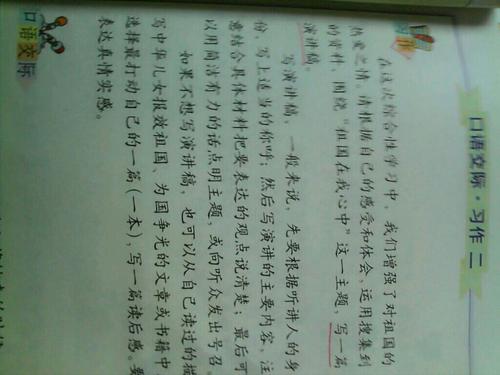 口语交际·习作二
习作
在这次综合性学习中，我们增强了对祖国的
热爱之情。请根据自己的感受和体会，运用搜集到
的资料，围绕“祖国在我心中”这一主题，写一篇
演讲稿。
写演讲稿，一般来说，先要根据听讲人的身
份，写上适当的称呼；然后写演讲的主要内容，注
意结合具体材料把要表达的观点说清楚；最后可
以用简洁有力的话点明主题，或向听众发出号召。
如果不想写演讲稿，也可以从自己读过的描
写中华儿女报效祖国、为国争光的文章或书籍中
选择最打动自己的一篇（一本），写一篇读后感。要
表达真情实感。
口语交际